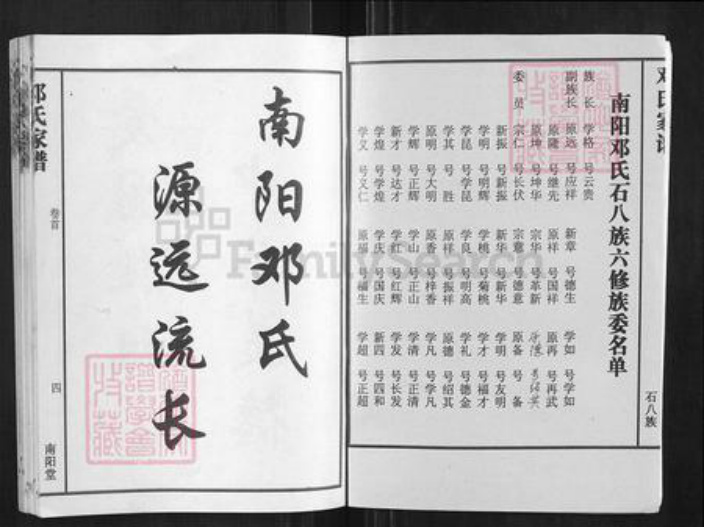 邓氏家谱
南阳邓氏石八族六修族委名单
族长 学格 号云贵
副族长 原远 号应祥 新章 号德生 学如 号学如
原隆 号继先 原祥 号国祥 原再 号再武
原坤 号坤华 宗华 号革新
委员 宗仁 号长伏 宗意 号德意 原备 号备
新振 号新振 新华 号新华 学明 号友明
学明 号明辉 学桃 号菊桃 学才 号福才
学昆 号学昆 学良 号明高 学礼 号德金
学其 号胜 原祥 号振祥 原德 号绍其
原明 号大明 原香 号梓香 学凡 号学凡
学辉 号正辉 学山 号正山 学清 号正清
新才 号达才 学红 号红辉 学发 号长发
学煌 号学煌 学庆 号国庆 新四 号四和
学义 号义仁 原福 号福生 学超 号正超
石八族
南阳邓氏
源远流长
邓氏家谱
卷首
四
南阳堂
FamilySearch